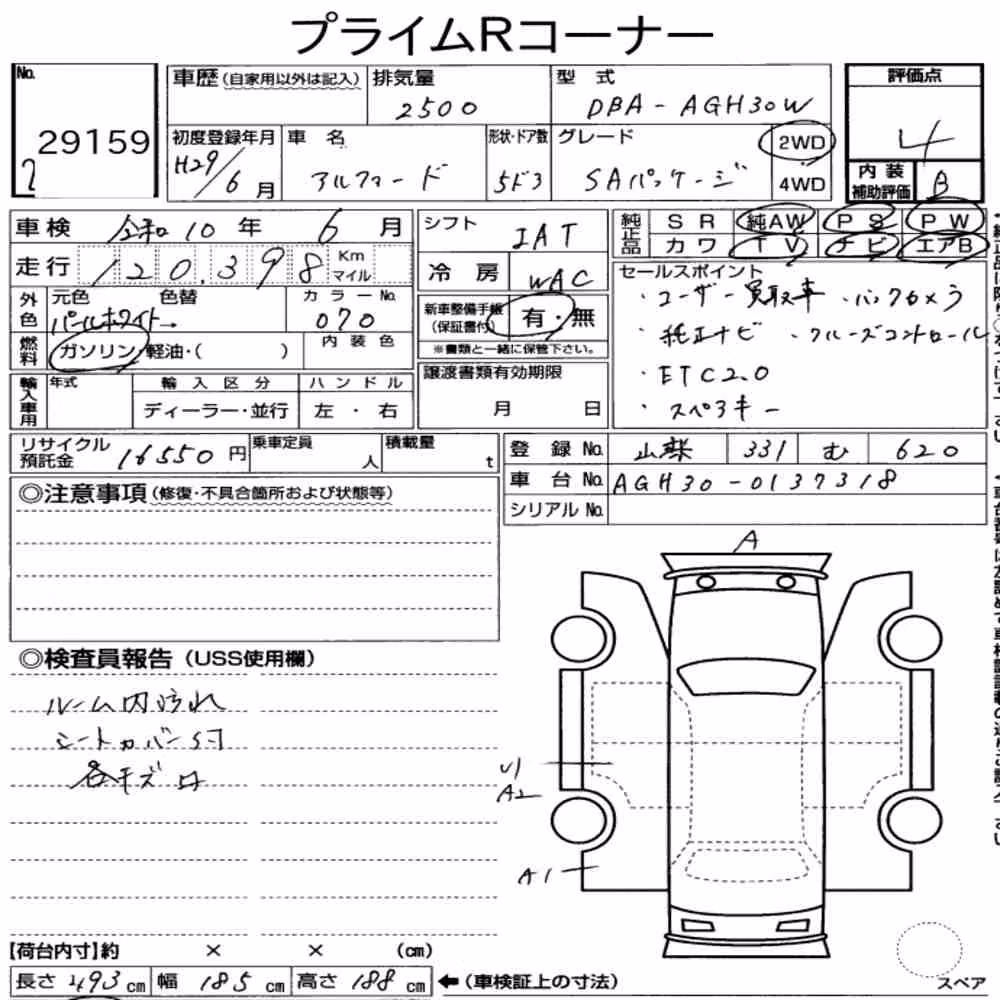 プライムRコーナー
No.
29159
車歴(自家用以外は記入)
排気量
2500
型式
DBA-AGH30W
評価点
4
初度登録年月
H29/6月
車名
アルファード
形状・ドア数
5ドア
グレード
SAパッケージ
2WD
4WD
内装
補助評価
B
車検 令和10年 6月
走行 120,398 Km
マイル
外色
元色
色替
カラーNo.
パールホワイト→
070
燃料
ガソリン・軽油・( )
内装色
輸入車用
年式
輸入区分
ハンドル
ディーラー・並行
左・右
シフト
IAT
冷房
WAC
新車整備手帳
(保証書付)
有・無
※書類と一緒に保管下さい。
譲渡書類有効期限
月 日
純正品
SR 純AW PS PW
カワ TV ナビ エアB
セールスポイント
・ユーザー買取車 ・バックカメラ
・純正ナビ ・クルーズコントロール
・ETC2.0
・スペアキー
リサイクル
預託金
16550円
乗車定員
人
積載量
t
登録No. 山梨 331 む 620
車台No. AGH30-0137318
シリアルNo.
◎注意事項(修復・不具合箇所および状態等)
◎検査員報告(USS使用欄)
ルーム内汚れ
シートカバー付
各キズ
A
U1
A2
A1
スペア
【荷台内寸】約 × × (cm)
長さ 493cm 幅 185cm 高さ 188cm ←(車検証上の寸法)